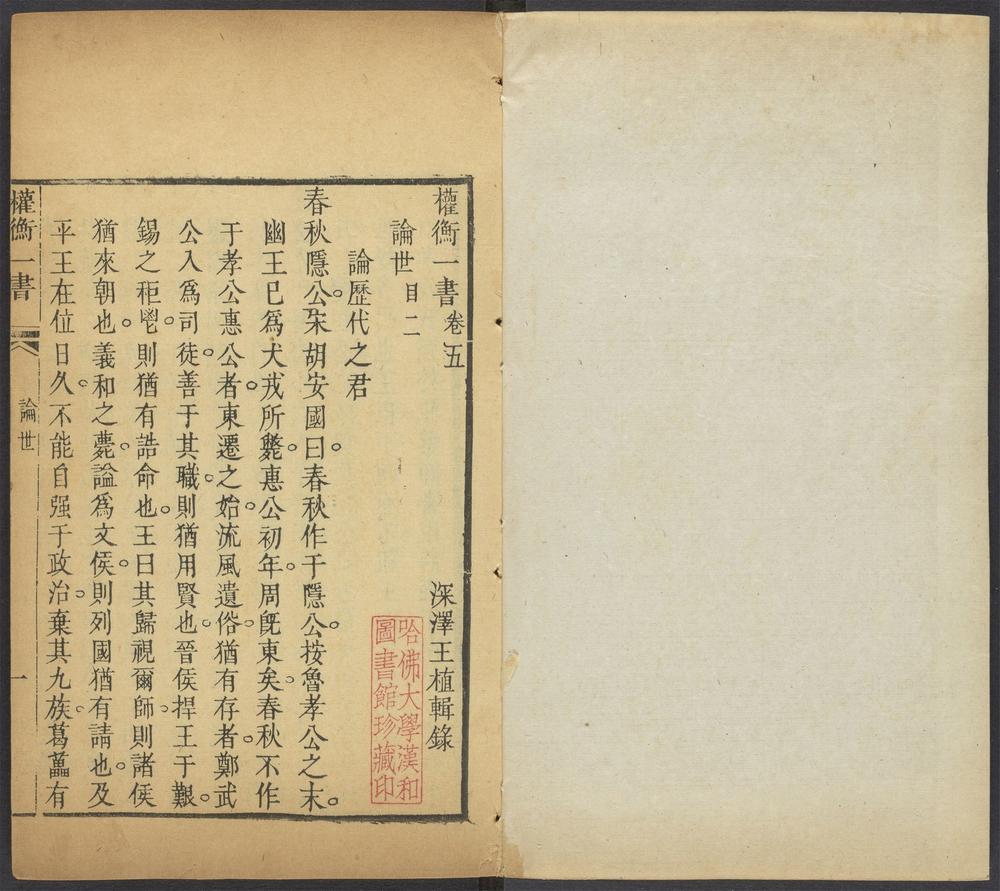 權衡一書卷五
深澤王植輯錄
論世目二
論歷代之君
春秋隱公宋胡安國曰春秋作于隱公按魯孝公之末
幽王已為犬戎所斃惠公初年周旣東矣春秋不作
于孝公惠公者東遷之始流風遺俗猶有存者鄭武
公入為司徒善于其職則猶用賢也晉侯捍王于艱
錫之秬鬯則猶有誥命也王曰其歸視爾師則諸侯
猶來朝也義和之薨諡為文侯則列國猶有請也及
平王在位日久不能自强于政治棄其九族葛藟有
權衡一書
論世
一
哈佛大學漢和
圖書館珍藏印